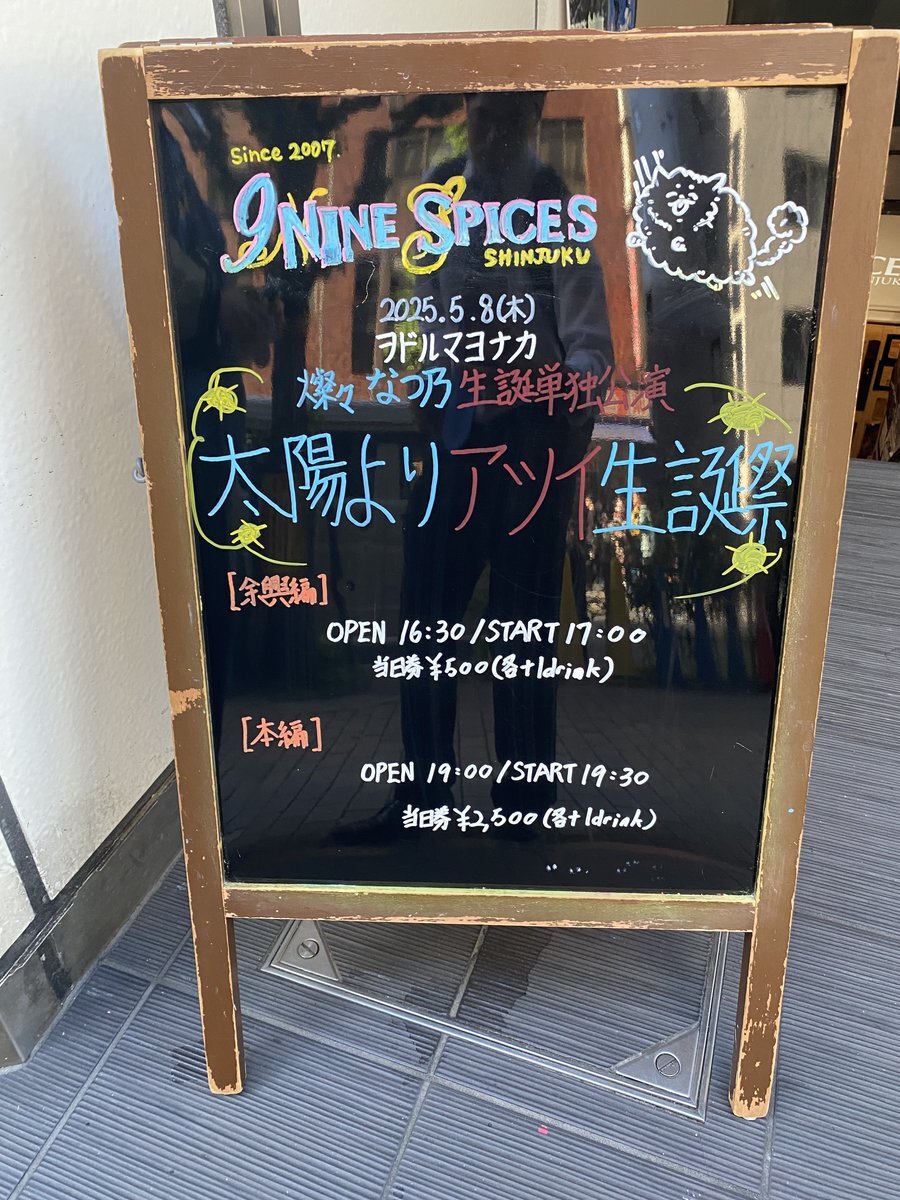 Since 2007.
9NINE SPICES
SHINJUKU
2025.5.8(木)
ヲドルマヨナカ
燦々なつ乃生誕単独公演
太陽よりアツイ生誕祭
[余興編]
OPEN 16:30/START 17:00
当日券¥500(各+1drink)
[本編]
OPEN 19:00/START 19:30
当日券¥2,500(各+1drink)